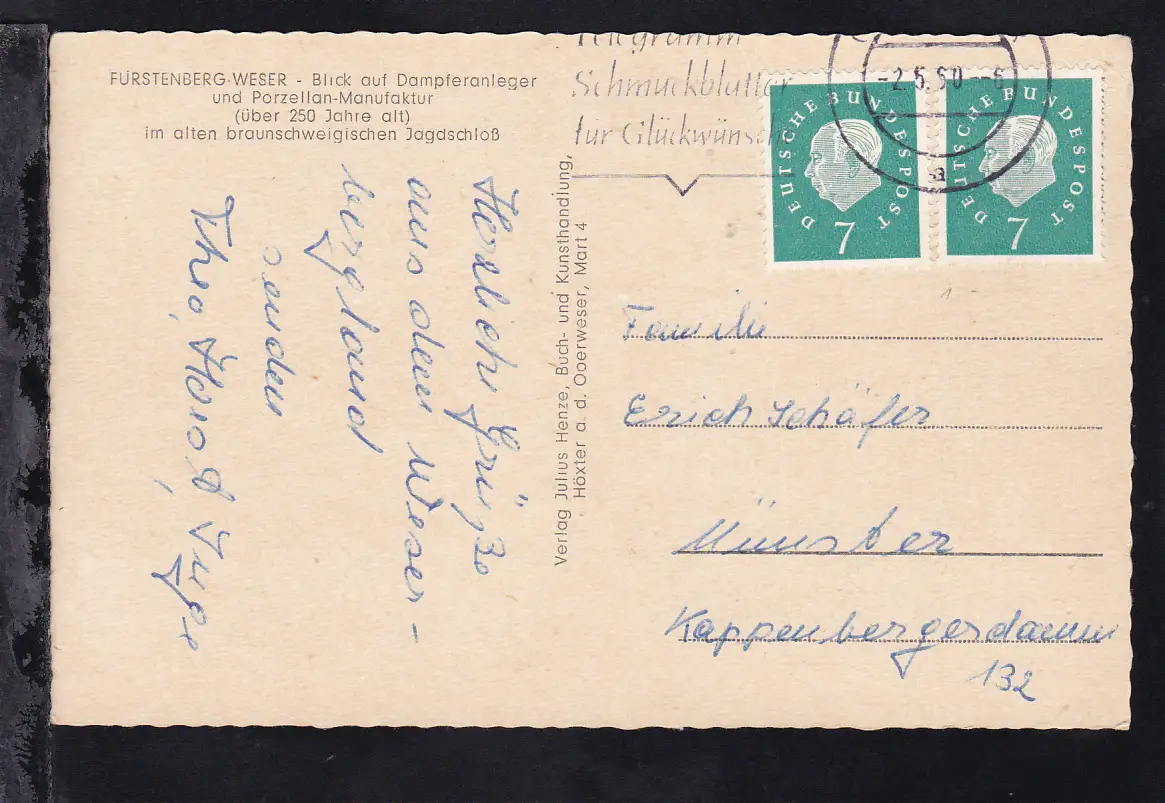 FÜRSTENBERG-WESER - Blick auf Dampferanleger
und Porzellan-Manufaktur
(über 250 Jahre alt)
im alten braunschweigischen Jagdschloß
Herzliche Grüße
aus dem Weser-
bergland
senden
Theo, Horst, Inge
Verlag Julius Henze, Buch- und Kunsthandlung,
Höxter a. d. Oberweser, Mart 4
Telegramm
Schmuckblätter
für Glückwünsche
-2.5.60--6
a
DEUTSCHE BUNDESPOST
7
DEUTSCHE BUNDESPOST
7
Familie
Erich Schäfer
Münster
Kappenbergerdamm
132